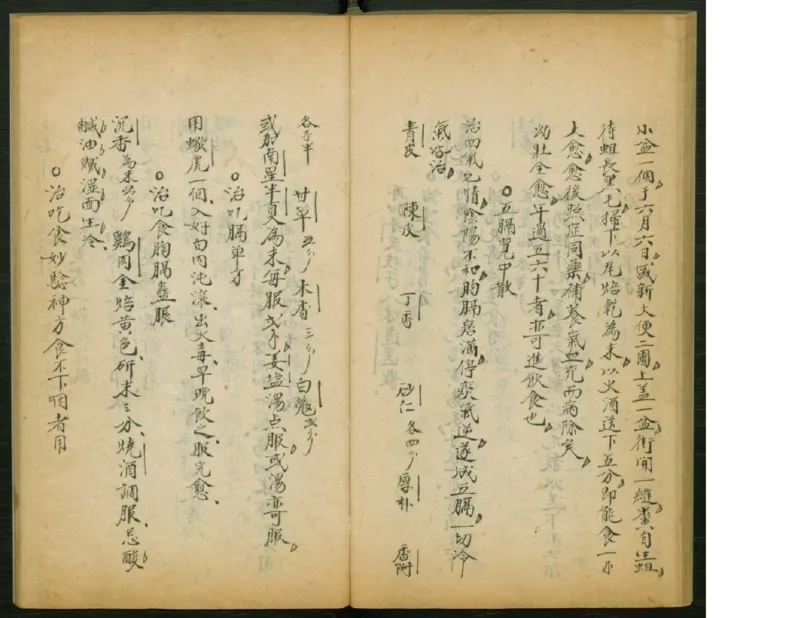 小盆一個于六月六日盛新大便二園上盖一盆街間一縫糞內生蛆
待蛆長黑七掃下以尾焙乾為末以火酒送下五分即能食一二
大愈愈後照症同藥補養氣血充而病除矣
幼壯全愈年過五六十者亦可進飲食也
○五膈寬中散
治四氣七情陰陽不和胸膈痞滿停痰氣逆遂成五膈一切冷
氣洽治
青皮 陳皮 丁香 砂仁各四 厚朴 香附
各 半 甘草五 木香三 白蔻
或加南星半夏為末每服 姜塩湯点服或湯亦可服
○治吃膈單方
用蠍虎一個入好白肉沌滾出火毒早晚飲之服完愈
○治吃食胸膈蠱脹
沉香為末 鷄肉金焙黄色研末三分燒酒調服忌酸
鹹油膩溼面生冷
○治吃食妙騐神方食不下咽者用